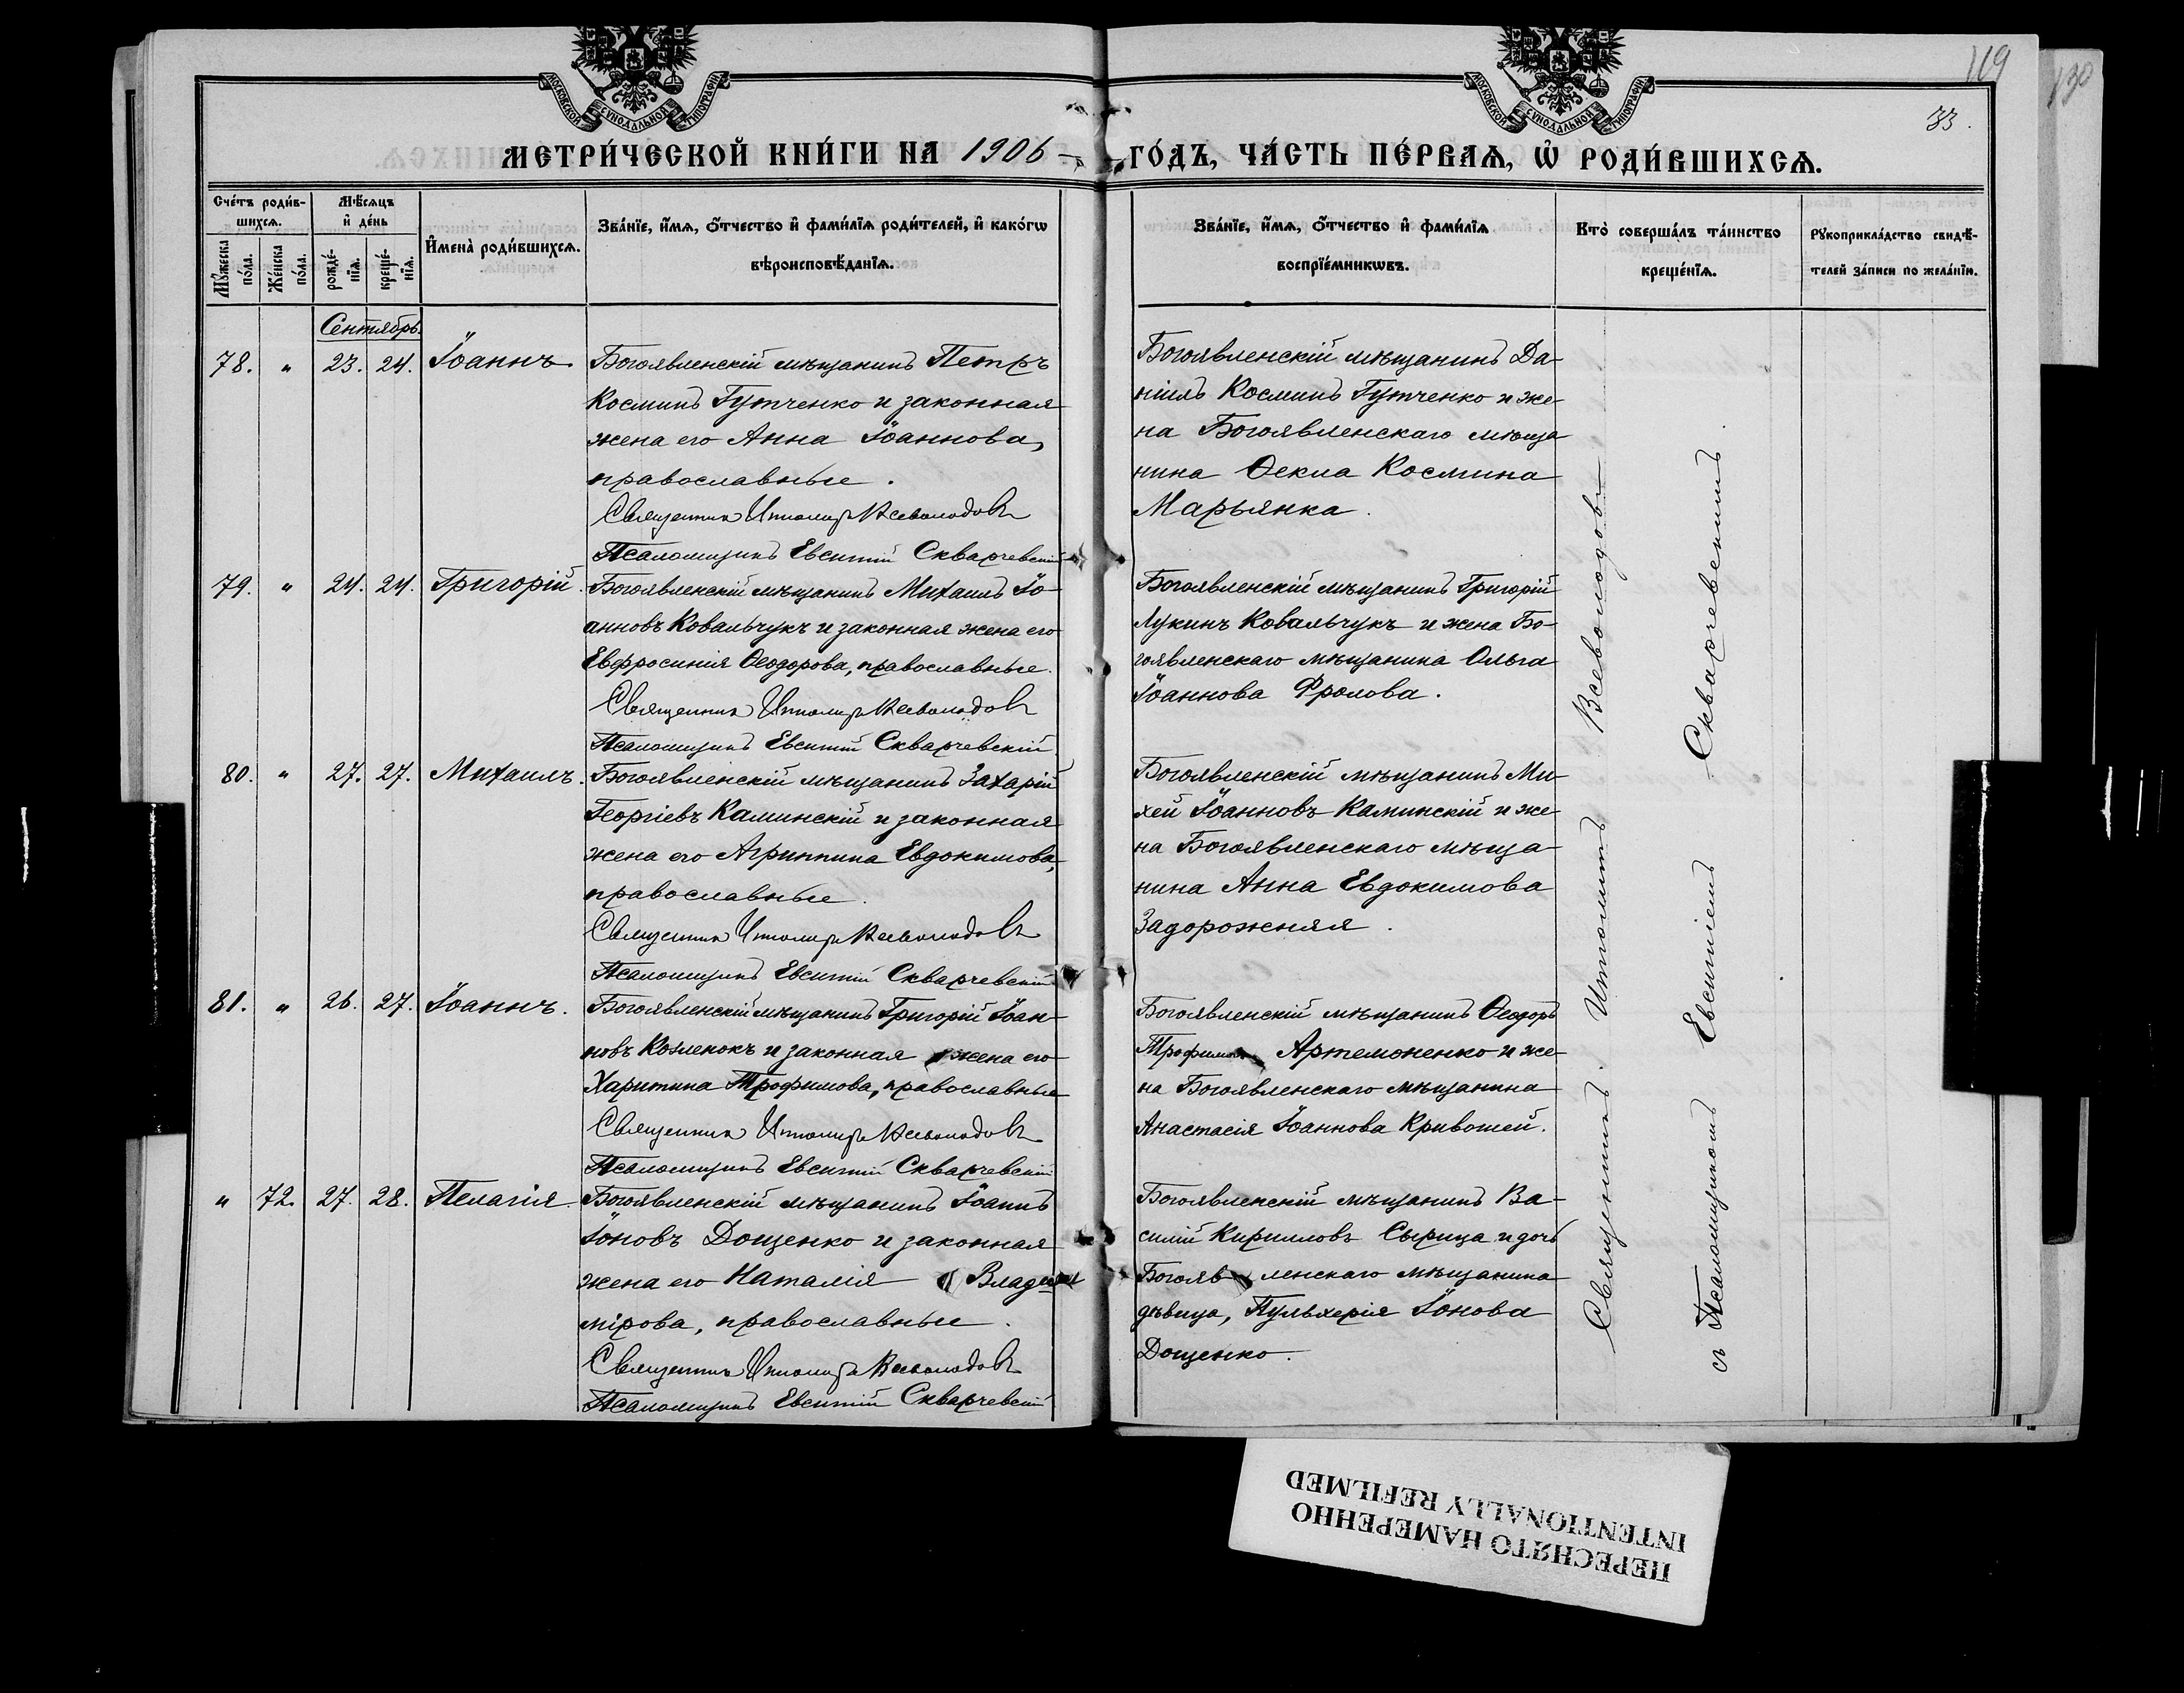 119
130
33.
МОСКОВСКОЙ СѴНОДАЛЬНОЙ ТИПОГРАФІИ
МОСКОВСКОЙ СѴНОДАЛЬНОЙ ТИПОГРАФІИ
МЕТРИ́ЧЕСКОЙ КНИ́ГИ НА 1906 ГО́ДЪ, ЧА́СТЬ ПЕ́РВАѦ, Ѡ҆ РОДИ́ВШИХСѦ.
Сче́тъ роди́в-
шихсѧ.
Мꙋ́жеска по́ла.
Же́нска по́ла.
Мѣ́сѧцъ
и҆ де́нь
рожде́-нїѧ.
креще́-нїѧ.
И҆мена̀ роди́вшихсѧ.
Зва́нїе, и҆́мѧ, ѻ҆́тчество и҆ фами́лїѧ роди́телей, и҆ како́гѡ
вѣроисповѣ́данїѧ.
Зва́нїе, и҆́мѧ, ѻ҆́тчество и҆ фами́лїѧ
воспрїе́мникѡвъ.
Кто̀ соверша́лъ та́инство
креще́нїѧ.
Рꙋкоприкла́дство свидѣ́-
телей за́писи по жела́нїю.
Сентябрь.
78. " 23. 24. Іоаннъ
Богоявленскій мѣщанинъ Петръ
Косминъ Гутченко и законная
жена его Анна Іоаннова,
православные.
Священник Ипполитъ Всеволодовъ
Псаломщикъ Евсигній Скварчевскій
Богоявленскій мѣщанинъ Да-
ніилъ Косминъ Гутченко и же-
на Богоявленскаго мѣща-
нина Ѳекла Космина
Марьянка.
79. " 24. 24. Григорій.
Богоявленскій мѣщанинъ Михаилъ Іо-
анновъ Ковальчукъ и законная жена его
Евфросинія Ѳеодорова, православные.
Священник Ипполитъ Всеволодовъ
Псаломщикъ Евсигній Скварчевскій.
Богоявленскій мѣщанинъ Григорій
Лукинъ Ковальчукъ и жена Бо-
гоявленскаго мѣщанина Ольга
Іоаннова Фролова.
80. " 27. 27. Михаилъ.
Богоявленскій мѣщанинъ Захарій
Георгіевъ Каминскій и законная
жена его Агриппина Евдокимова,
православные.
Священник Ипполитъ Всеволодовъ
Псаломщикъ Евсигній Скварчевскій
Богоявленскій мѣщанинъ Ми-
хей Іоанновъ Каминскій и же-
на Богоявленскаго мѣща-
нина Анна Евдокимова
Задорожняя.
81. " 26. 27. Іоаннъ.
Богоявленскій мѣщанинъ Григорій Іоан-
новъ Козленокъ и законная жена его
Харитина Трофимова, православные
Священник Ипполитъ Всеволодовъ
Псаломщикъ Евсигній Скварчевскій
Богоявленскій мѣщанинъ Ѳеодоръ
Трофимовъ Артемоненко и же-
на Богоявленскаго мѣщанина
Анастасія Іоаннова Кривошей.
" 72. 27. 28. Пелагія.
Богоявленскій мѣщанинъ Іоаннъ
Іоновъ Дощенко и законная
жена его Наталія Влади-
мірова, православные.
Священник Ипполитъ Всеволодовъ
Псаломщикъ Евсигній Скварчевскій
Богоявленскій мѣщанинъ Ва-
силій Кирилловъ Сырица и дочь
Богоявленскаго мѣщанина
дѣвица, Пульхерія Іонова
Дощенко.
Священникъ Ипполитъ Всеволодовъ
съ Псаломщикомъ Евсигніемъ Скварчевскимъ
ПЕРЕСНЯТО НАМЕРЕННО
INTENTIONALLY REFILMED